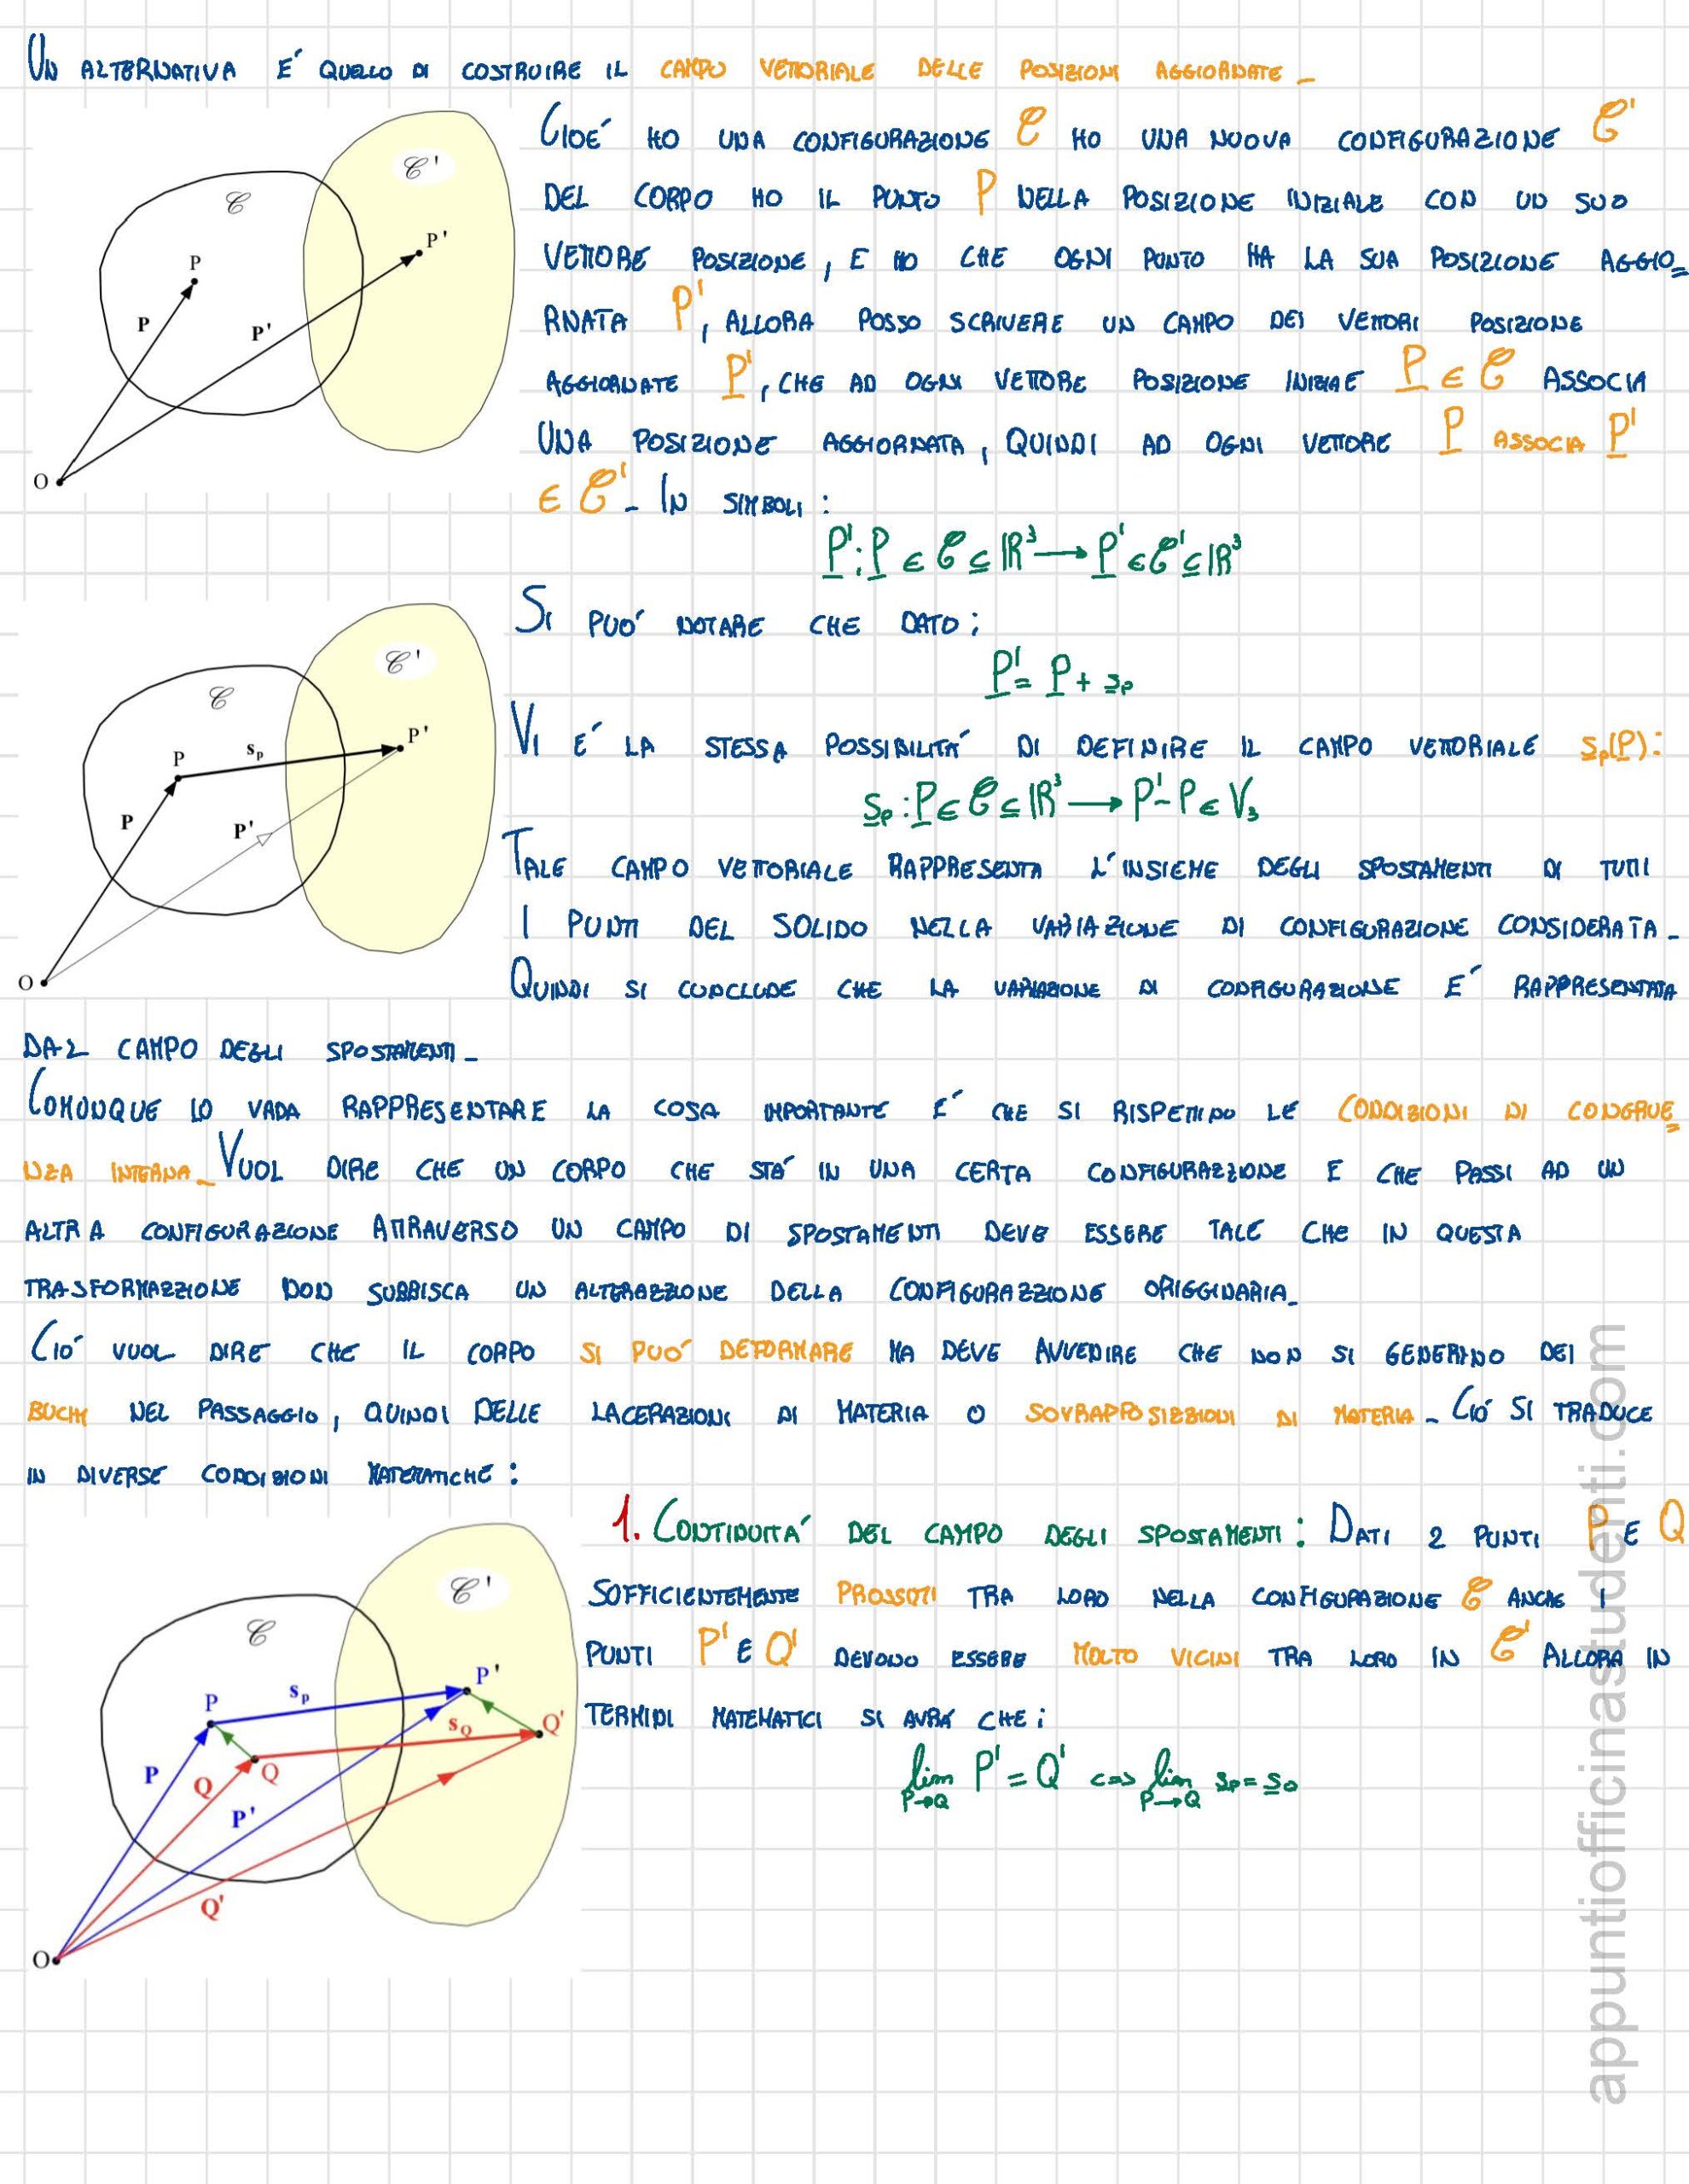 UN ALTERNATIVA E' QUELLO DI COSTRUIRE IL CAMPO VETTORIALE DELLE POSIZIONI AGGIORNATE_
CIOE' HO UNA CONFIGURAZIONE 𝒞 HO UNA NUOVA CONFIGURAZIONE 𝒞'
DEL CORPO HO IL PUNTO P NELLA POSIZIONE INIZIALE CON UN SUO
VETTORE POSIZIONE, E HO CHE OGNI PUNTO HA LA SUA POSIZIONE AGGIO=
RNATA P', ALLORA POSSO SCRIVERE UN CAMPO DEI VETTORI POSIZIONE
AGGIORNATE P', CHE AD OGNI VETTORE POSIZIONE INIZIAE P ∈ 𝒞 ASSOCIA
UNA POSIZIONE AGGIORNATA, QUINDI AD OGNI VETTORE P ASSOCIA P'
∈ 𝒞'_ IN SIMBOLI:
P': P ∈ 𝒞 ⊆ ℝ³ → P' ∈ 𝒞' ⊆ ℝ³
𝒞
𝒞'
P
P'
P
P'
O
SI PUO' NOTARE CHE DATO:
P' = P + sp
VI E' LA STESSA POSSIBILITA' DI DEFINIRE IL CAMPO VETTORIALE sp(P):
sp: P ∈ 𝒞 ⊆ ℝ³ → P' - P ∈ V₃
TALE CAMPO VETTORIALE RAPPRESENTA L'INSIEME DEGLI SPOSTAMENTI DI TUTTI
I PUNTI DEL SOLIDO NELLA VARIAZIONE DI CONFIGURAZIONE CONSIDERATA_
QUINDI SI CONCLUDE CHE LA VARIAZIONE DI CONFIGURAZIONE E' RAPPRESENTATA
𝒞
𝒞'
P
sp
P'
P
P'
O
DAL CAMPO DEGLI SPOSTAMENTI_
COMUNQUE LO VADA RAPPRESENTARE LA COSA IMPORTANTE E' CHE SI RISPETTINO LE CONDIZIONI DI CONGRUE=
NZA INTERNA_ VUOL DIRE CHE UN CORPO CHE STA' IN UNA CERTA CONFIGURAZZIONE E CHE PASSI AD UN
ALTRA CONFIGURAZIONE ATTRAVERSO UN CAMPO DI SPOSTAMENTI DEVE ESSERE TALE CHE IN QUESTA
TRASFORMAZZIONE NON SUBBISCA UN ALTERAZZIONE DELLA CONFIGURAZZIONE ORIGGINARIA_
CIO' VUOL DIRE CHE IL CORPO SI PUO' DEFORMARE MA DEVE AVVENIRE CHE NON SI GENERINO DEI
BUCHI NEL PASSAGGIO, QUINDI DELLE LACERAZIONI DI MATERIA O SOVRAPPOSIZZIONI DI MATERIA_ CIO' SI TRADUCE
IN DIVERSE CONDIZIONI MATEMATICHE:
1. CONTINUITA' DEL CAMPO DEGLI SPOSTAMENTI: DATI 2 PUNTI P E Q
SOFFICIENTEMENTE PROSSIMI TRA LORO NELLA CONFIGURAZIONE 𝒞 ANCHE I
PUNTI P' E Q' DEVONO ESSERE MOLTO VICINI TRA LORO IN 𝒞' ALLORA IN
TERMINI MATEMATICI SI AVRÀ CHE:
lim P' = Q' <=> lim sp = sQ
P→Q P→Q
𝒞
𝒞'
P
sp
P'
sQ
Q'
Q
P
Q
P'
Q'
O
appuntiofficinastudenti.com